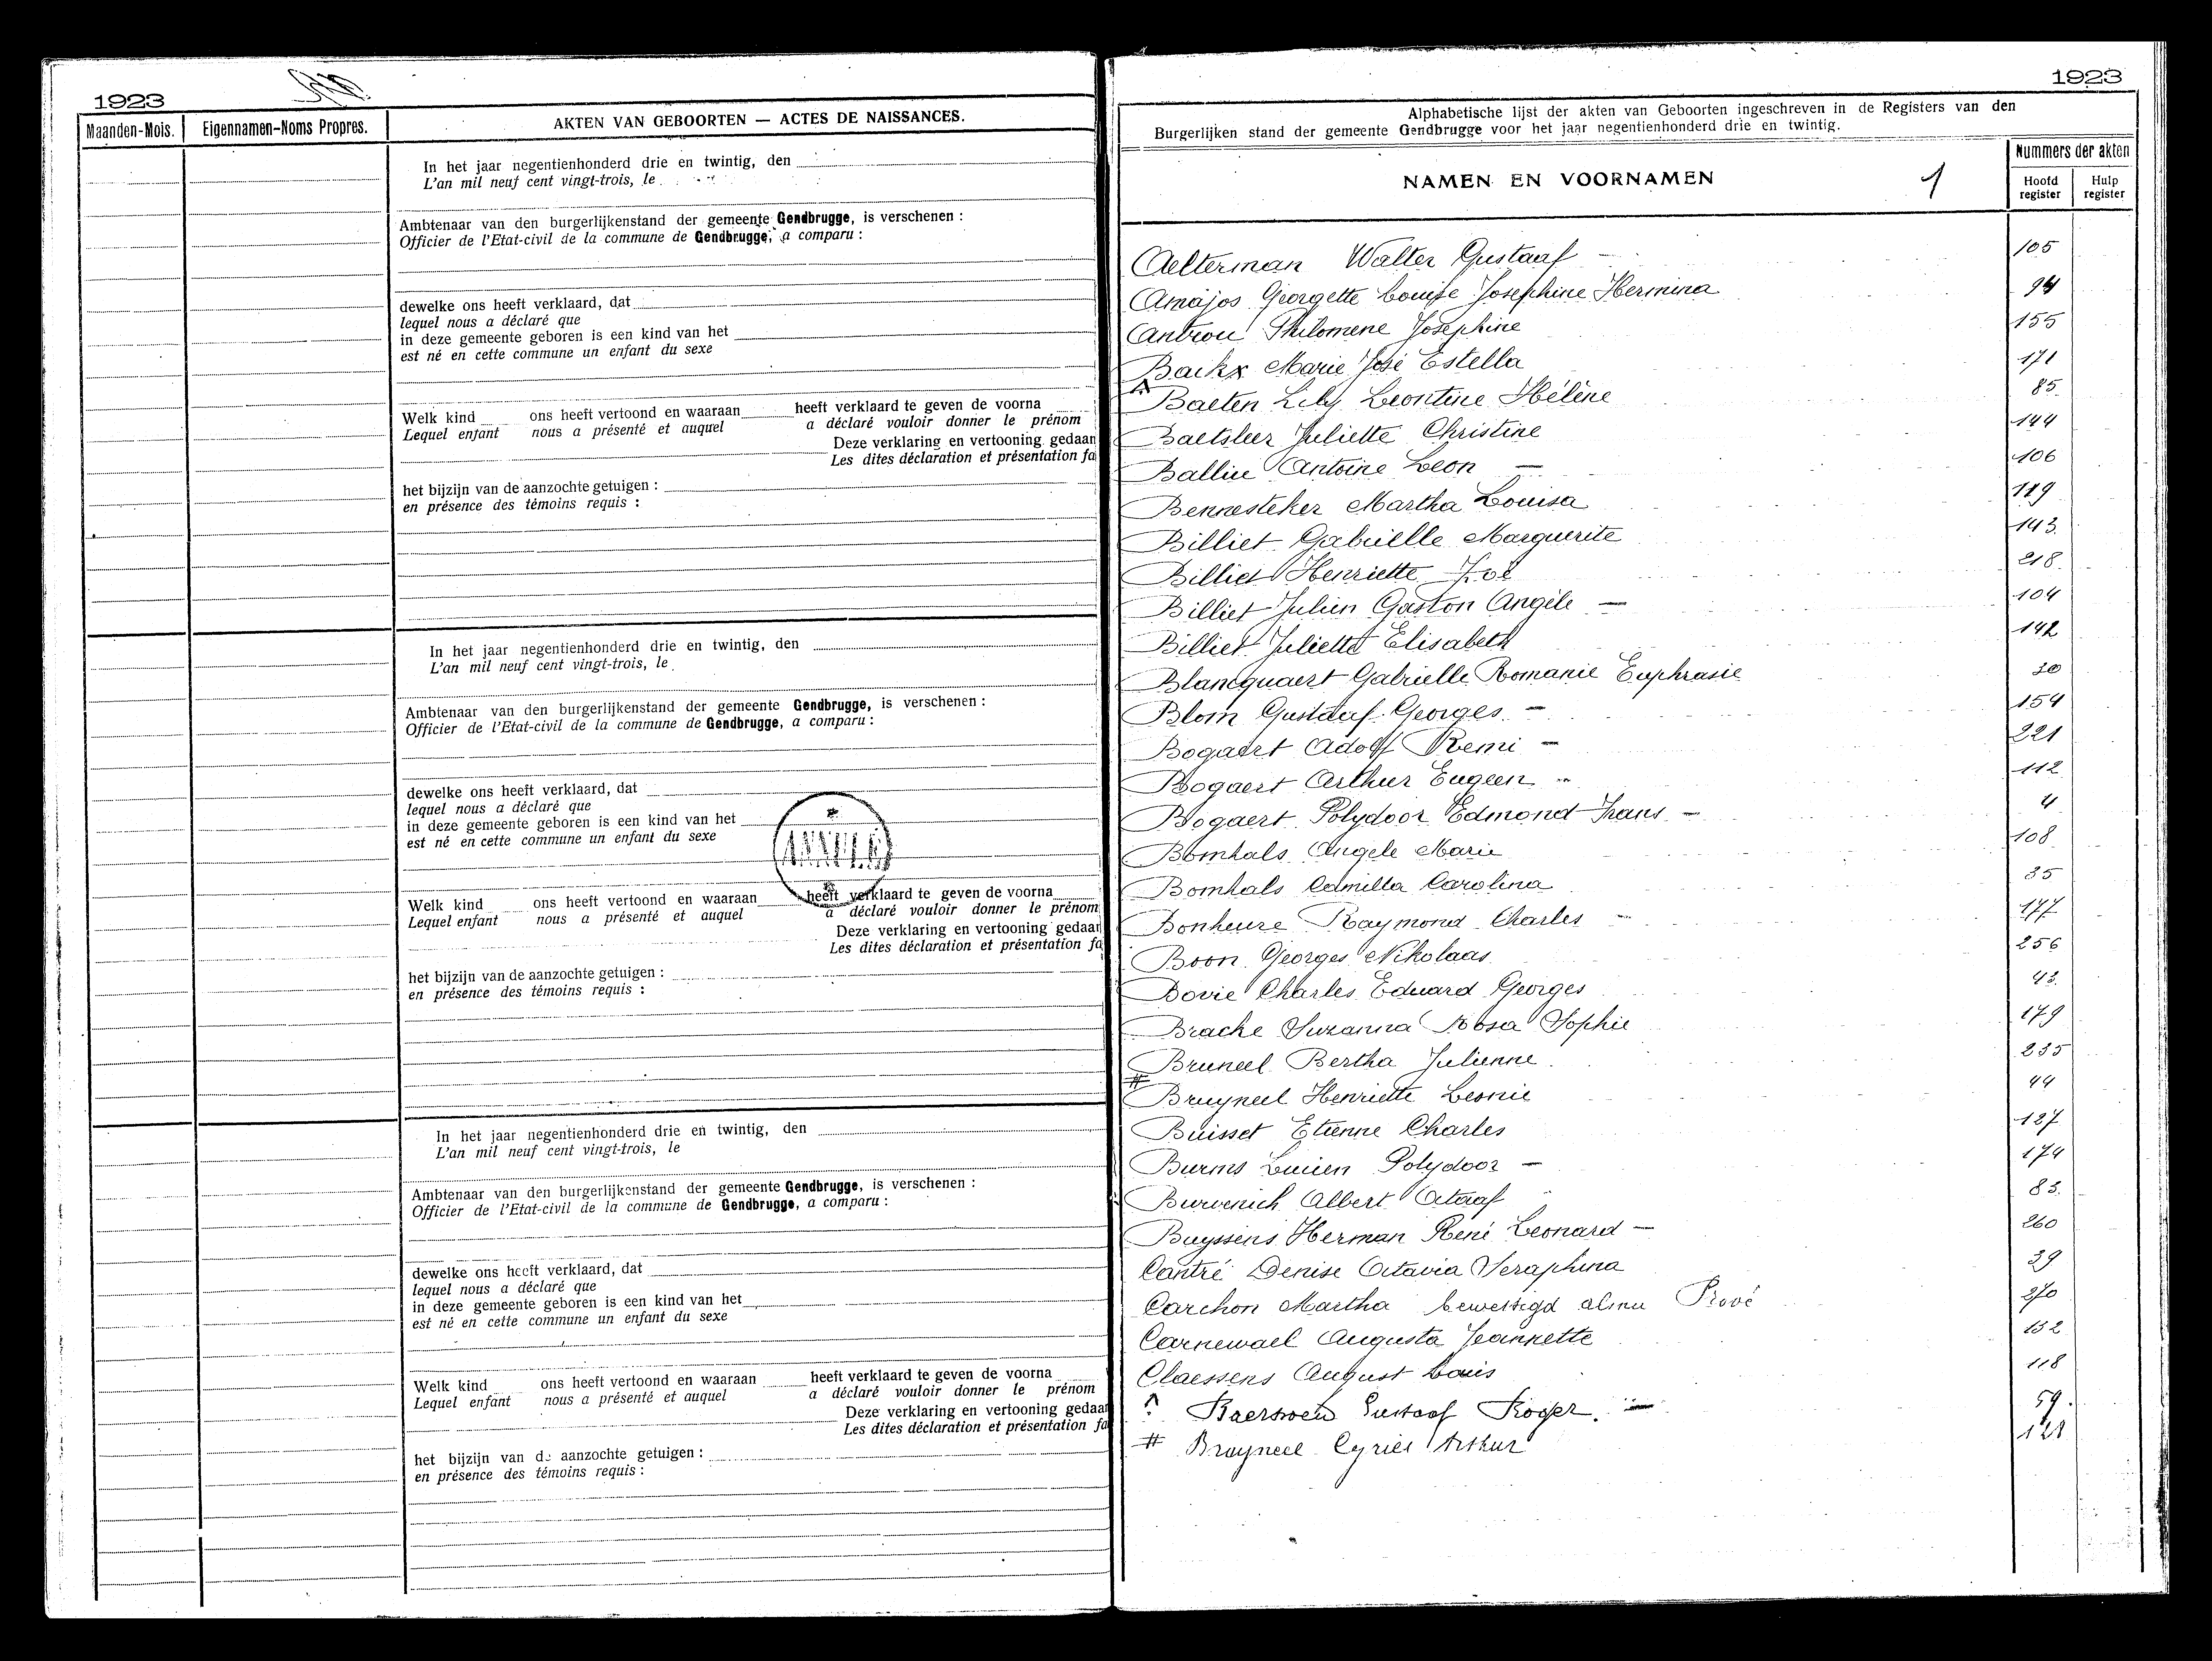 1923
Maanden-Mois.
Eigennamen-Noms Propres.
AKTEN VAN GEBOORTEN — ACTES DE NAISSANCES.
In het jaar negentienhonderd drie en twintig, den
L'an mil neuf cent vingt-trois, le
Ambtenaar van den burgerlijkenstand der gemeente Gendbrugge, is verschenen :
Officier de l'Etat-civil de la commune de Gendbrugge, a comparu :
dewelke ons heeft verklaard, dat
lequel nous a déclaré que
in deze gemeente geboren is een kind van het
est né en cette commune un enfant du sexe
Welk kind ons heeft vertoond en waaraan heeft verklaard te geven de voorna
Lequel enfant nous a présenté et auquel a déclaré vouloir donner le prénom
Deze verklaring en vertooning gedaan
Les dites déclaration et présentation fa
het bijzijn van de aanzochte getuigen :
en présence des témoins requis :
In het jaar negentienhonderd drie en twintig, den
L'an mil neuf cent vingt-trois, le
Ambtenaar van den burgerlijkenstand der gemeente Gendbrugge, is verschenen :
Officier de l'Etat-civil de la commune de Gendbrugge, a comparu :
dewelke ons heeft verklaard, dat
lequel nous a déclaré que
in deze gemeente geboren is een kind van het
est né en cette commune un enfant du sexe
Welk kind ons heeft vertoond en waaraan heeft verklaard te geven de voorna
Lequel enfant nous a présenté et auquel a déclaré vouloir donner le prénom
Deze verklaring en vertooning gedaan
Les dites déclaration et présentation fa
het bijzijn van de aanzochte getuigen :
en présence des témoins requis :
In het jaar negentienhonderd drie en twintig, den
L'an mil neuf cent vingt-trois, le
Ambtenaar van den burgerlijkenstand der gemeente Gendbrugge, is verschenen :
Officier de l'Etat-civil de la commune de Gendbrugge, a comparu :
dewelke ons heeft verklaard, dat
lequel nous a déclaré que
in deze gemeente geboren is een kind van het
est né en cette commune un enfant du sexe
Welk kind ons heeft vertoond en waaraan heeft verklaard te geven de voorna
Lequel enfant nous a présenté et auquel a déclaré vouloir donner le prénom
Deze verklaring en vertooning gedaan
Les dites déclaration et présentation fa
het bijzijn van de aanzochte getuigen :
en présence des témoins requis :
1923
Alphabetische lijst der akten van Geboorten ingeschreven in de Registers van den
Burgerlijken stand der gemeente Gendbrugge voor het jaar negentienhonderd drie en twintig.
NAMEN EN VOORNAMEN 1
Nummers der akten
Hoofd register
Hulp register
Aelterman Walter Gustaaf — 105
Amajos Georgette Louise Josephine Hermina 94
Antrou Philomene Josephine 155
Backx Marie José Estella 171
Baeten Lily Leontine Hélène 85
Baetsleer Juliette Christine 144
Balliu Antoine Leon — 106
Bennesteker Martha Louisa 119
Billiet Gabrielle Marguerite 143
Billiet Henriette Zoé 218
Billiet Julien Gaston Angèle — 104
Billiet Juliette Elisabeth 142
Blancquaert Gabrielle Romanie Euphrasie 20
Blom Gustaaf Georges — 154
Bogaert Adolf Remi — 221
Bogaert Arthur Eugeen 112
Bogaert Polydoor Edmond Frans — 4
Bomhals Angele Marie 108
Bomhals Camilla Carolina 35
Bonheure Raymond Charles — 177
Boon Georges Nikolaas 256
Bovie Charles Eduard Georges 43
Bracke Suzanna Rosa Sophie 179
Bruneel Bertha Julienne 235
# Bruyneel Henriette Leonie 44
Buisset Etienne Charles 187
Burms Lucien Polydoor — 174
Burvenich Albert Octaaf 83
Buyssens Herman René Leonard — 260
Cantré Denise Octavia Seraphina 29
Carchon Martha bewettigd Provó 270
Carnewael Augusta Jeannette 132
Claessens August Louis 118
Gustaaf Roger — 59
# Bruyneel Cyriel Arthur 121